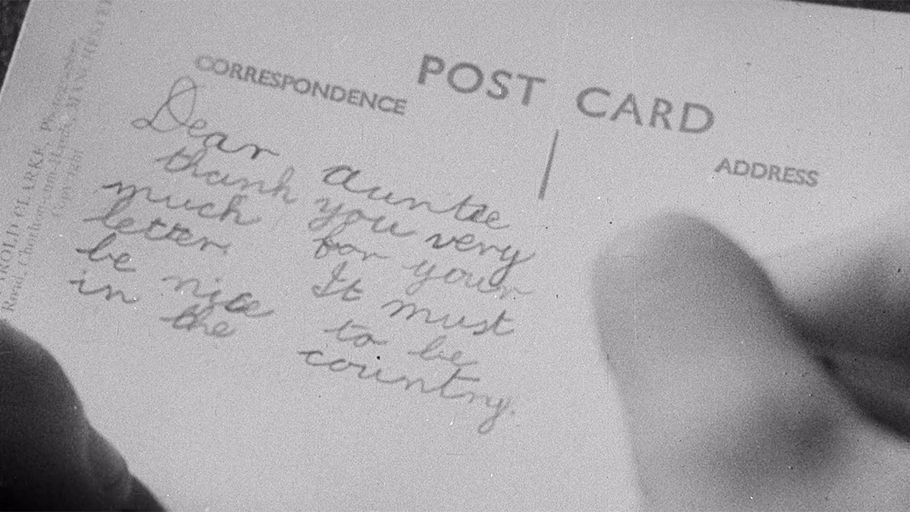 POST CARD
CORRESPONDENCE
ADDRESS
Dear Auntie
thank you very
much for your
letter. It must
be nice to be
in the country.
HAROLD CLARKE, Photographer
Road, Chorlton-cum-Hardy, MANCHESTER
Copyright